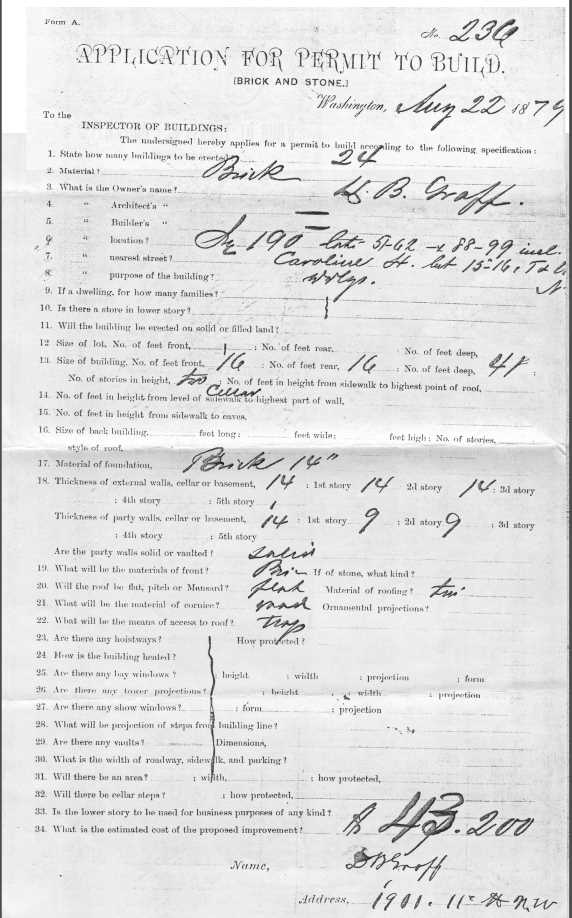 Form A.
No. 236
APPLICATION FOR PERMIT TO BUILD.
[BRICK AND STONE.]
Washington, Aug 22 1879
To the
INSPECTOR OF BUILDINGS:
The undersigned hereby applies for a permit to build according to the following specification:
1. State how many buildings to be erected 24
2. Material? Brick
3. What is the Owner's name? D. B. Groff.
4. " Architect's " =
5. " Builder's " =
6. " location? Sq 190 lots 51-62 & 88-99 incl.
7. " nearest street? Caroline St. bet 15" 16, T & U
8. " purpose of the building? dwlgs. N.
9. If a dwelling, for how many families?
10. Is there a store in lower story?
11. Will the building be erected on solid or filled land?
12 Size of lot, No. of feet front, : No. of feet rear, No. of feet deep,
13. Size of building, No. of feet front, 16 : No. of feet rear, 16 : No. of feet deep, :
No. of stories in height, two Cellar : No. of feet in height from sidewalk to highest point of roof,
14. No. of feet in height from level of sidewalk to highest part of wall,
15. No. of feet in height from sidewalk to eaves,
16. Size of back building, feet long: feet wide: feet high: No. of stories,
style of roof,
17. Material of foundation, Brick 14"
18. Thickness of external walls, cellar or basement, 14 : 1st story 14 2d story 14 : 3d story
: 4th story : 5th story
Thickness of party walls, cellar or basement, 14 : 1st story 9 : 2d story 9 : 3d story
: 4th story : 5th story
Are the party walls solid or vaulted? solid
19. What will be the materials of front? Bric If of stone, what kind?
20. Will the roof be flat, pitch or Mansard? flat Material of roofing? tin
21. What will be the material of cornice? wood Ornamental projections?
22. What will be the means of access to roof? trap
23. Are there any hoistways? How protected?
24 How is the building heated?
25. Are there any bay windows? height : width : projection : form
26. Are there any tower projections? : height : width : projection
27. Are there any show windows? : form : projection
28. What will be projection of steps from building line?
29. Are there any vaults? Dimensions,
30. What is the width of roadway, sidewalk, and parking?
31. Will there be an area? : width, : how protected,
32. Will there be cellar steps? : how protected,
33. Is the lower story to be used for business purposes of any kind?
34. What is the estimated cost of the proposed improvement? $ 43.200
Name, D B Groff
Address, 1901. 11" St N.W